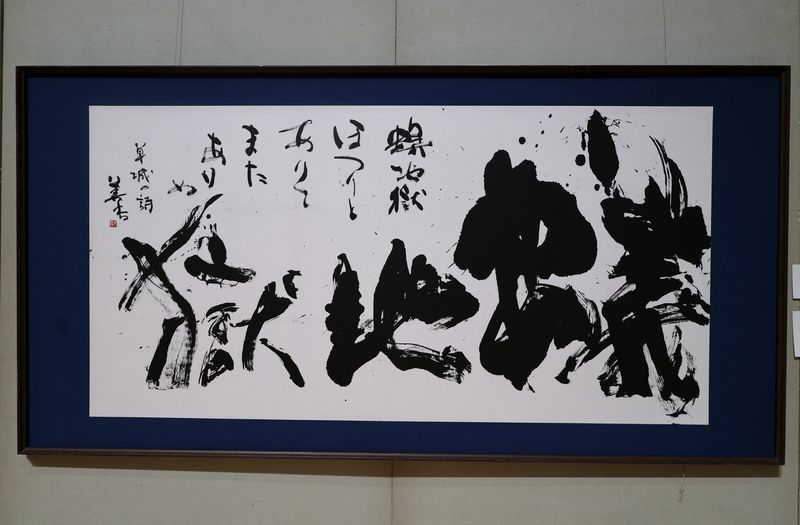 蟻地獄
蟻地獄
ほつりと
ありて
また
ありぬ
草城の詩